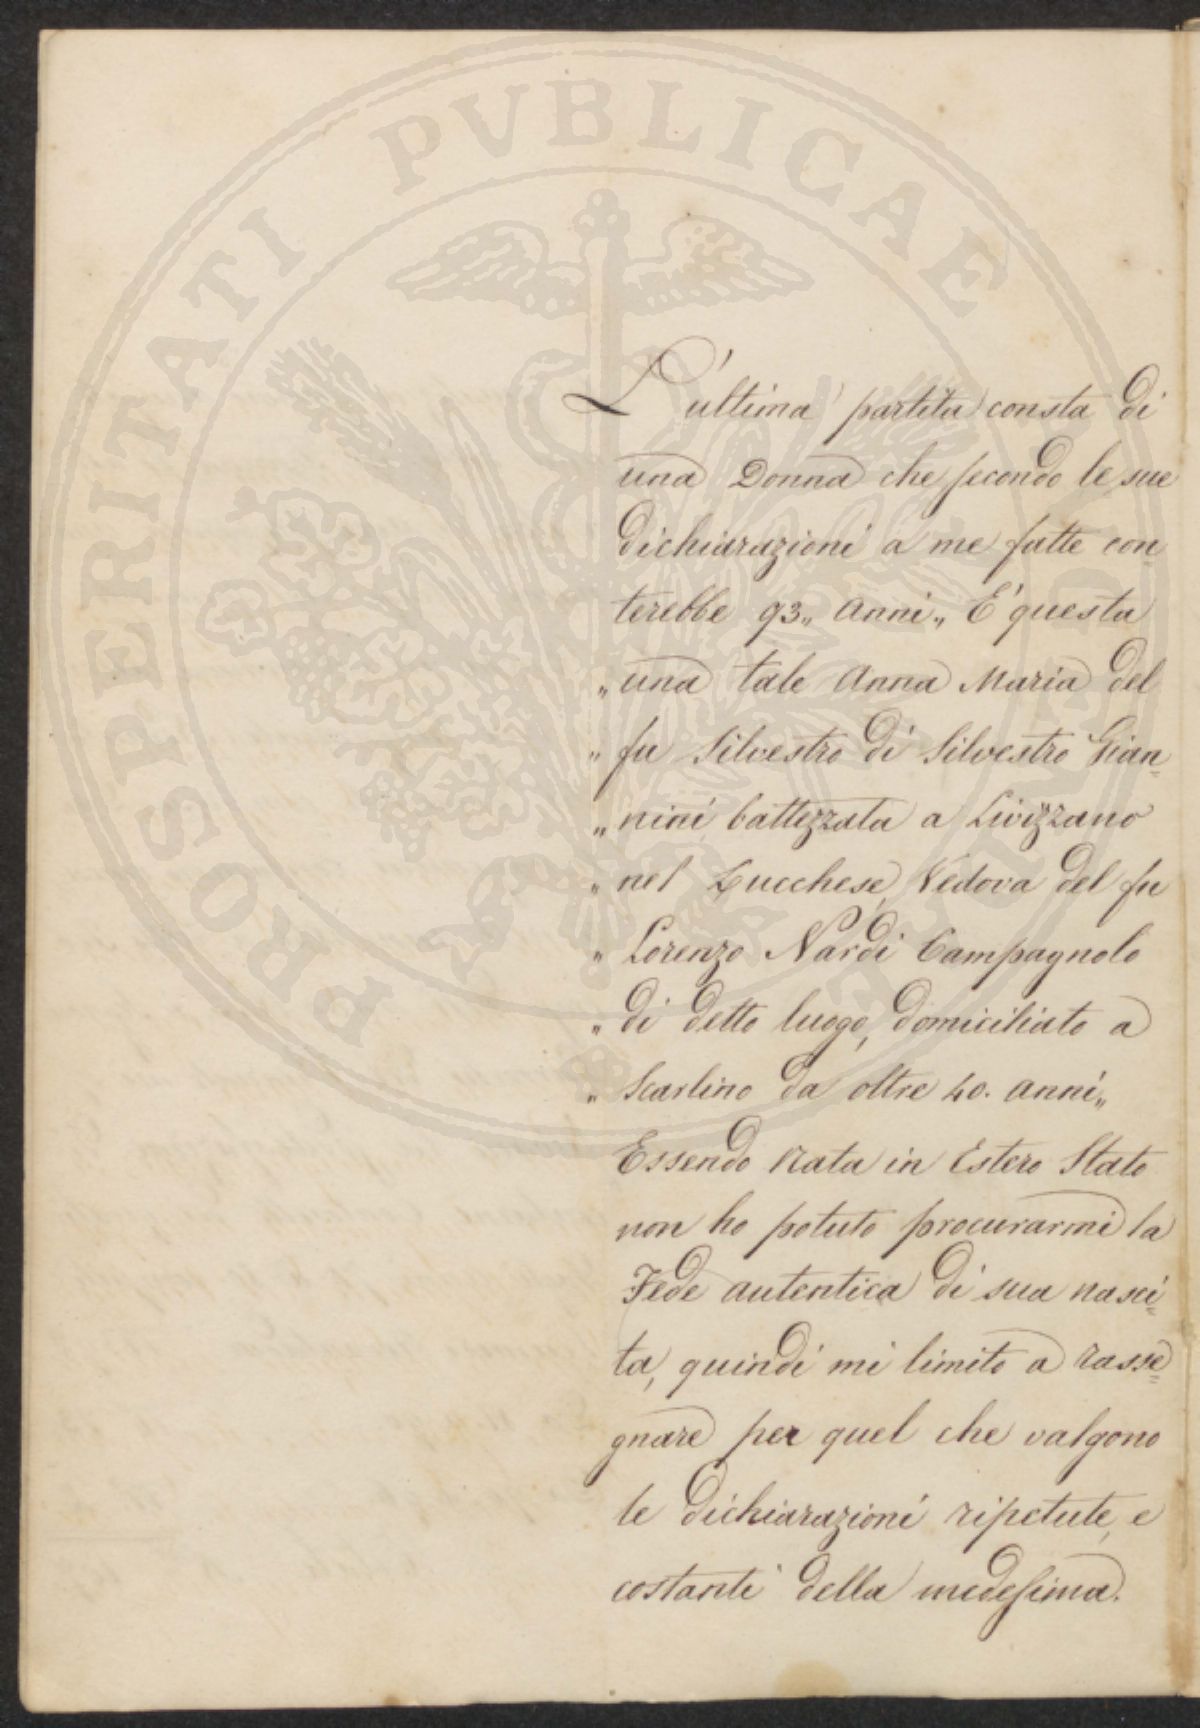 PROSPERITATI PVBLICAE
L'ultima partita consta di
una Donna che secondo le sue
dichiarazioni a me fatte con
terebbe 93„ Anni„ E' questa
„ una tale Anna Maria del
„ fu Silvestro di Silvestro Gian=
„ nini battezzata a Livizzano
„ nel Lucchese, Vedova del fu
„ Lorenzo Nardi Campagnolo
„ di detto luogo, domiciliato a
„ Scarlino da oltre 40. anni„
Essendo nata in Estero Stato
non ho potuto procurarmi la
Fede autentica di sua nasci=
ta, quindi mi limito a rasse=
gnare per quel che valgono
le dichiarazioni ripetute, e
costanti della medesima.